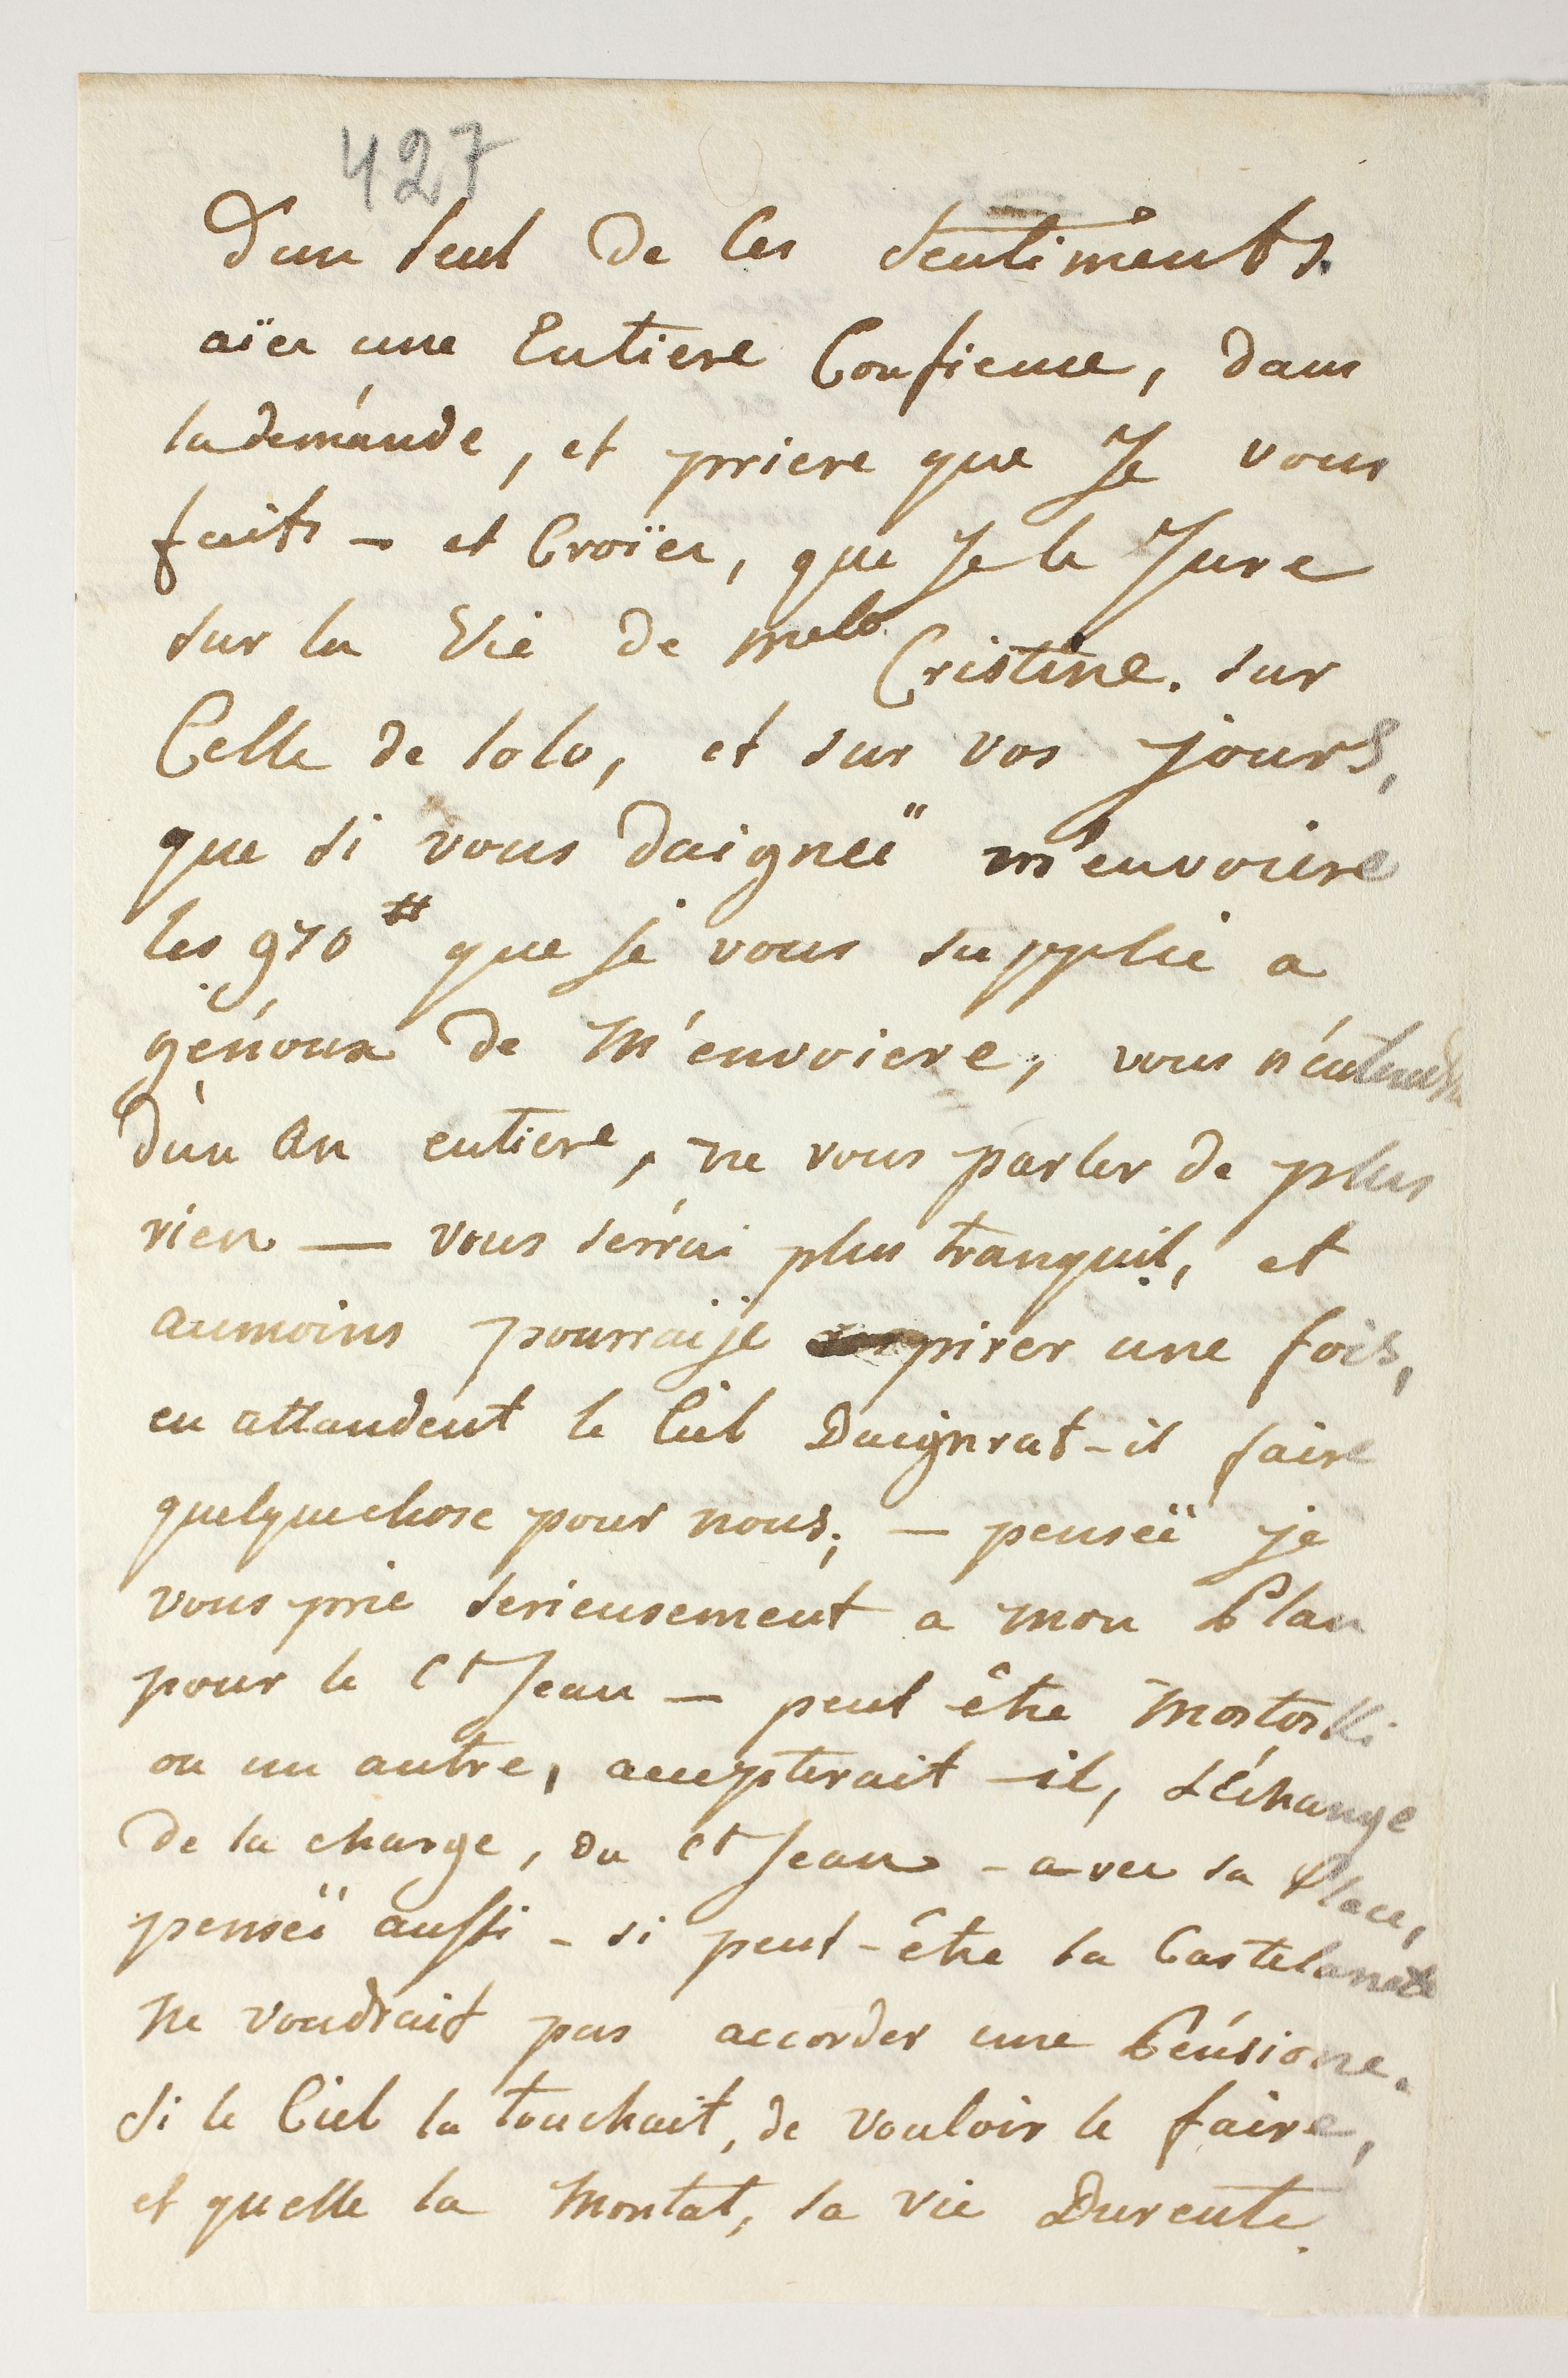 427
d'un seul de Ces sentiments.
aïes une Entiere Confience, dans
la demánde, et priere que Je vous
faits – et Croïes, que Je le Jure
sur la Vie de melle Cristine. sur
Celle de lolo, et sur vos jours,
que si vous daigneï m'envoiere
les 970 # que je vous supplie a
génoux de M'envoiere, vous
d'un An entiere, ne vous parler de plus
rien — vous sérrai plus tranquil, et
aumoins pourraije respirer une fois,
en attandent le Ciel Daignrat-il faire
quelquechose pour nous; – penseï je
vous prie serieusement a mon Plan
pour le Ct Jean – peut être
ou un autre, accepterait-il, l'Échange
de la charge, du Ct Jean – avec sa Place,
penseï aussi – si peut-être la
ne voudrait pas accorder une Pénsione.
si le Ciel la touchait, de vouloir le faire,
et quelle la Montat, sa vie Durente.